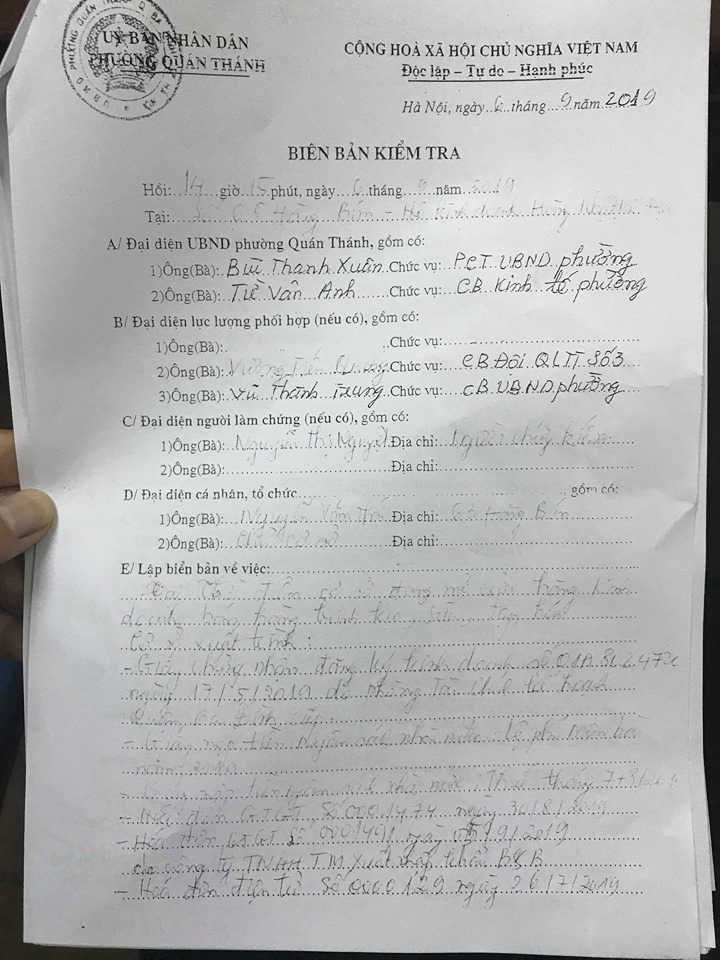 UỶ BAN NHÂN DÂN
PHƯỜNG QUÁN THÁNH
CỘNG HOÀ XÃ HỘI CHỦ NGHĨA VIỆT NAM
Độc lập – Tự do – Hạnh phúc
Hà Nội, ngày 6 tháng 9 năm 2019
BIÊN BẢN KIỂM TRA
Hồi: 14 giờ 15 phút, ngày 6 tháng 9 năm 2019
Tại: Số 65 Hàng Bún – Hộ kinh doanh Hồng
A/ Đại diện UBND phường Quán Thánh, gồm có:
1)Ông(Bà): Bùi Thanh Xuân Chức vụ: P.C.T UBND phường
2)Ông(Bà): Từ Vân Anh Chức vụ: CB Kinh tế phường
B/ Đại diện lực lượng phối hợp (nếu có), gồm có:
1)Ông(Bà): Chức vụ:
2)Ông(Bà): Vương Tiến Chức vụ: CB Đội QLTT số 3
3)Ông(Bà): Vũ Thành Trung Chức vụ: CB UBND phường
C/ Đại diện người làm chứng (nếu có), gồm có:
1)Ông(Bà): Nguyễn Thị Nguyệt Địa chỉ: Người chứng kiến
2)Ông(Bà): Địa chỉ:
D/ Đại diện cá nhân, tổ chức gồm có:
1)Ông(Bà): Nguyễn Văn Địa chỉ: 65 Hàng Bún
2)Ông(Bà): Chủ cơ sở Địa chỉ:
E/ Lập biên bản về việc:
Tại thời điểm cơ sở đang mở cửa hàng kinh
doanh bán hàng bánh kẹo, sữa,
Cơ sở xuất trình:
- Giấy chứng nhận đăng ký kinh doanh số 01A8
ngày 17/5/2019 do phòng Tài chính kế hoạch
Quận Ba Đình cấp
- Giấy nộp tiền Ngân sách nhà nước lệ phí môn bài
năm
- Giấy nộp tiền ngân sách nhà nước: Thuế tháng 7+8/2019
- Hoá đơn GTGT số 0001474 ngày 30/8/2019
- Hoá đơn GTGT số 0001491 ngày 05/9/2019
do công ty TNHH TM Xuất nhập khẩu B&B
- Hoá đơn điện tử số 0000129 ngày 26/7/2019